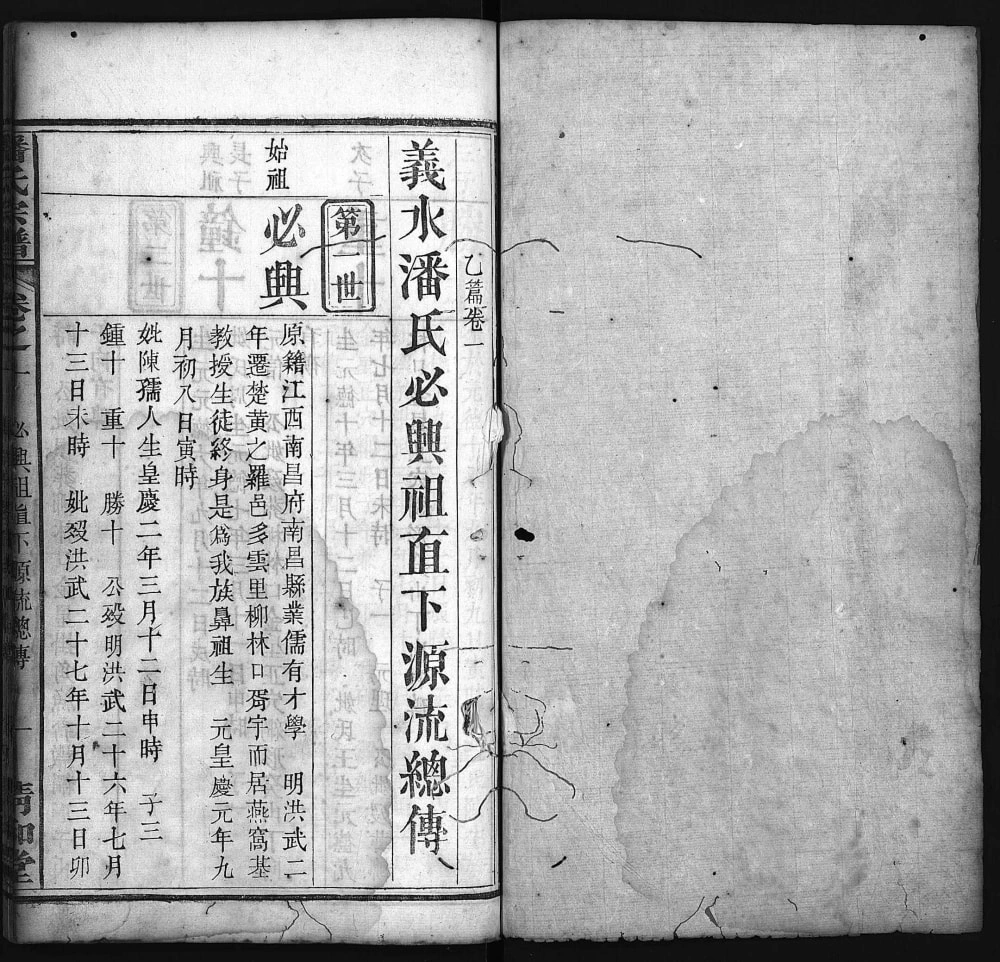 乙篇卷一
義水潘氏必興祖直下源流總傳
第一世
始祖
必興
原籍江西南昌府南昌縣業儒有才學 明洪武二
年遷楚黃之羅邑多雲里柳林口胥宇而居燕窩基
教授生徒終身是爲我族鼻祖生 元皇慶元年九
月初八日寅時
妣陳孺人生皇慶二年三月十二日申時 子三
鍾十 重十 勝十 公歿明洪武二十六年七月
十三日未時 妣歿洪武二十七年十月十三日卯
潘氏宗譜
卷之一
必興祖直下源流總傳
一